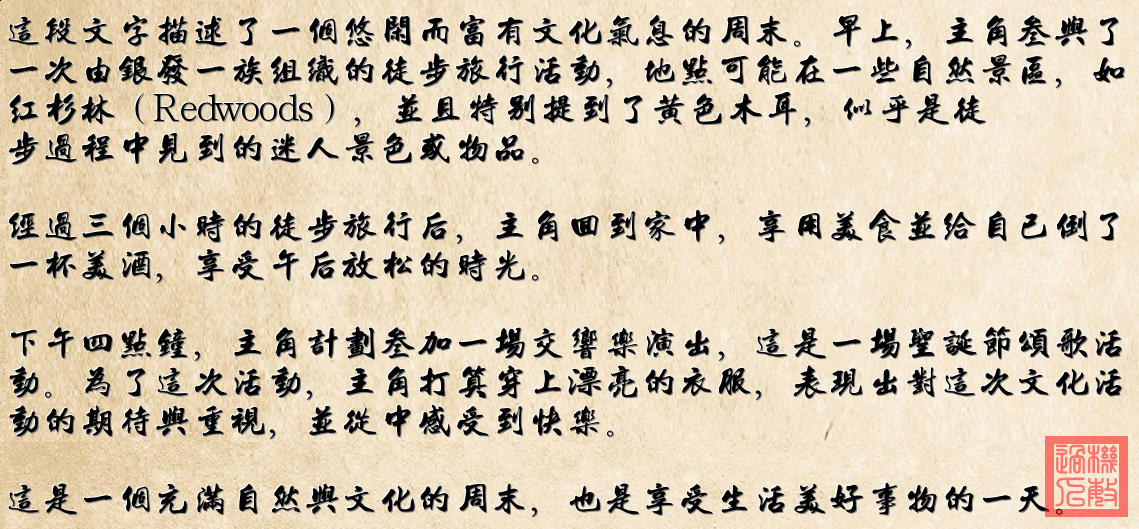 這段文字描述了一個悠閑而富有文化氣息的周末。早上，主角叁與了
一次由銀發一族組織的徒步旅行活動，地點可能在一些自然景區，如
紅杉林（Redwoods），並且特別提到了黃色木耳，似乎是徒
步過程中見到的迷人景色或物品。
經過三個小時的徒步旅行后，主角回到家中，享用美食並給自己倒了
一杯美酒，享受午后放松的時光。
下午四點鐘，主角計劃叁加一場交響樂演出，這是一場聖誕節頌歌活
動。為了這次活動，主角打算穿上漂亮的衣服，表現出對這次文化活
動的期待與重視，並從中感受到快樂。
這是一個充滿自然與文化的周末，也是享受生活美好事物的一天。